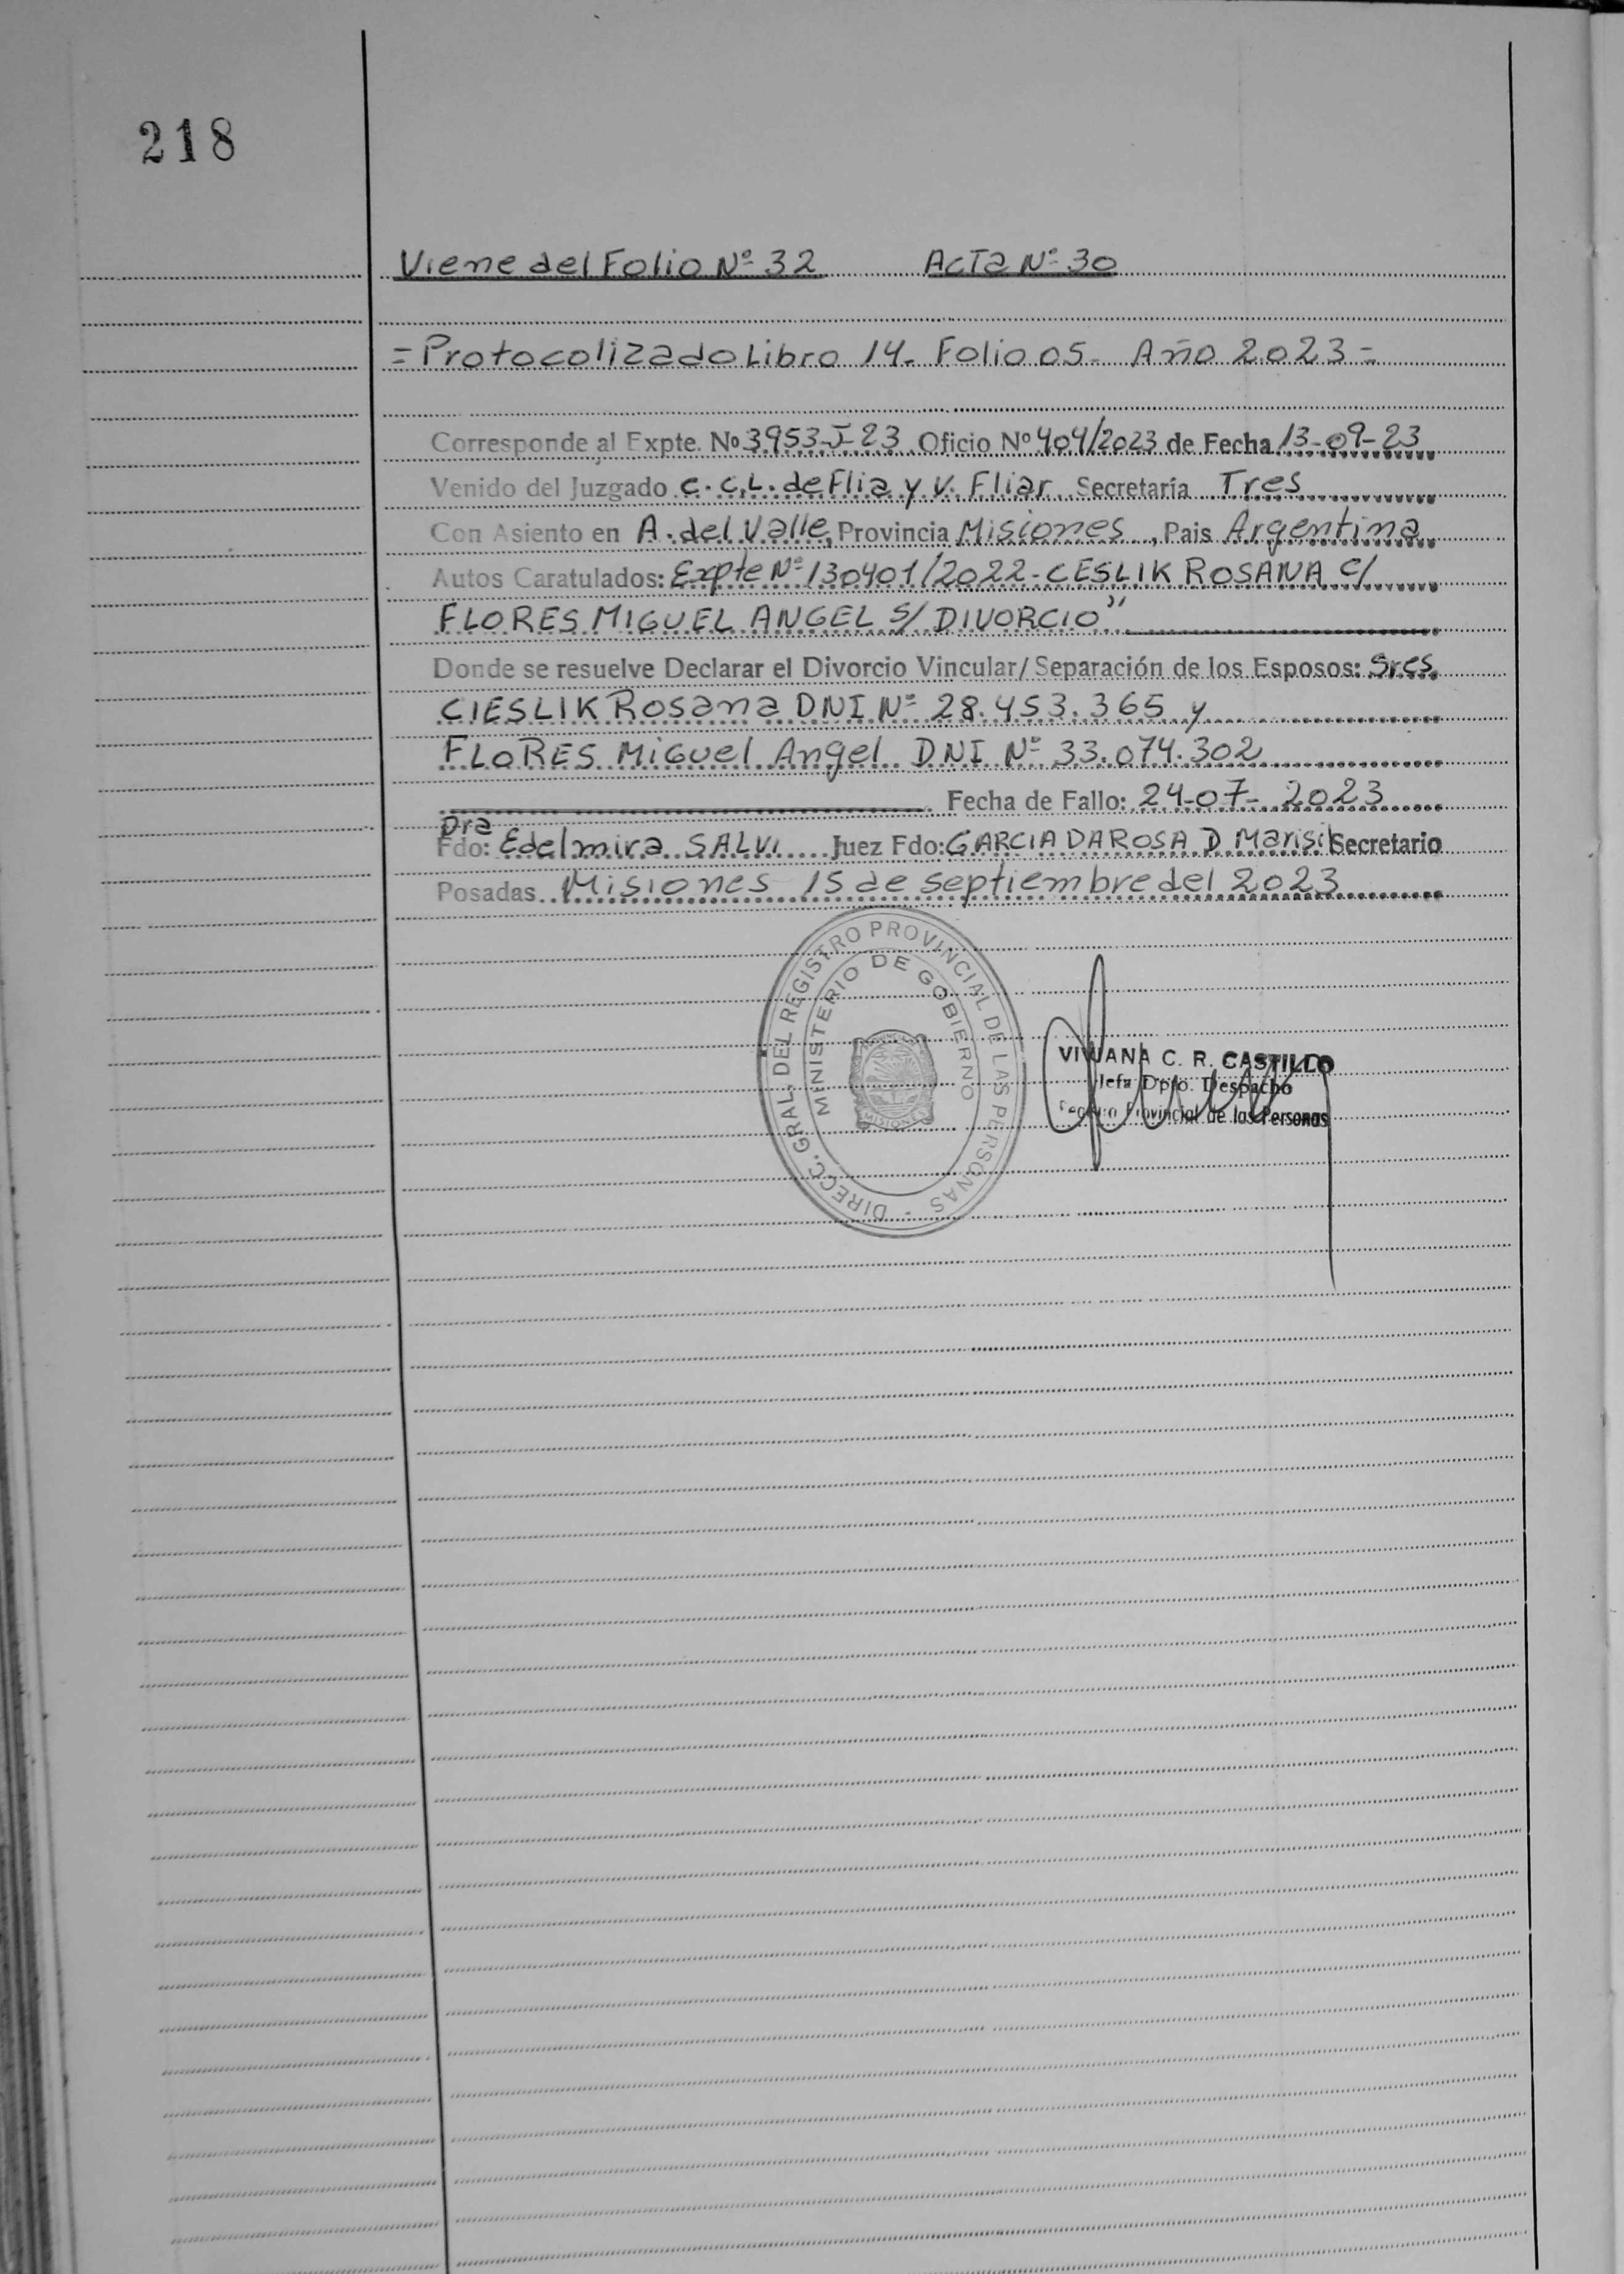 218
Viene del Folio Nº 32 Acta Nº 30
= Protocolizado Libro 14- Folio 05- Año 2023=
Corresponde al Expte. Nº 3953-J-23 Oficio Nº 404/2023 de Fecha 13-09-23
Venido del Juzgado C.C.L. de Flia y V. Fliar Secretaría Tres
Con Asiento en A. del Valle, Provincia Misiones, Pais Argentina
Autos Caratulados: Expte Nº 130401/2022-CESLIK ROSANA C/
FLORES MIGUEL ANGEL S/ DIVORCIO"
Donde se resuelve Declarar el Divorcio Vincular/Separación de los Esposos: Sres
CIESLIK Rosana DNI Nº 28.453.365 y
FLORES Miguel Angel DNI Nº 33.074.302
Fecha de Fallo: 24-07-2023
Dra
Fdo: Edelmira SALVI Juez Fdo: GARCIA DAROSA D Marisil Secretario
Posadas Misiones 15 de septiembre del 2023
DIRECC. GRAL. DEL REGISTRO PROVINCIAL DE LAS PERSONAS -
MINISTERIO DE GOBIERNO
MISIONES
VIVIANA C. R. CASTILLO
Jefa Dpto. Despacho
Registro Provincial de las Personas